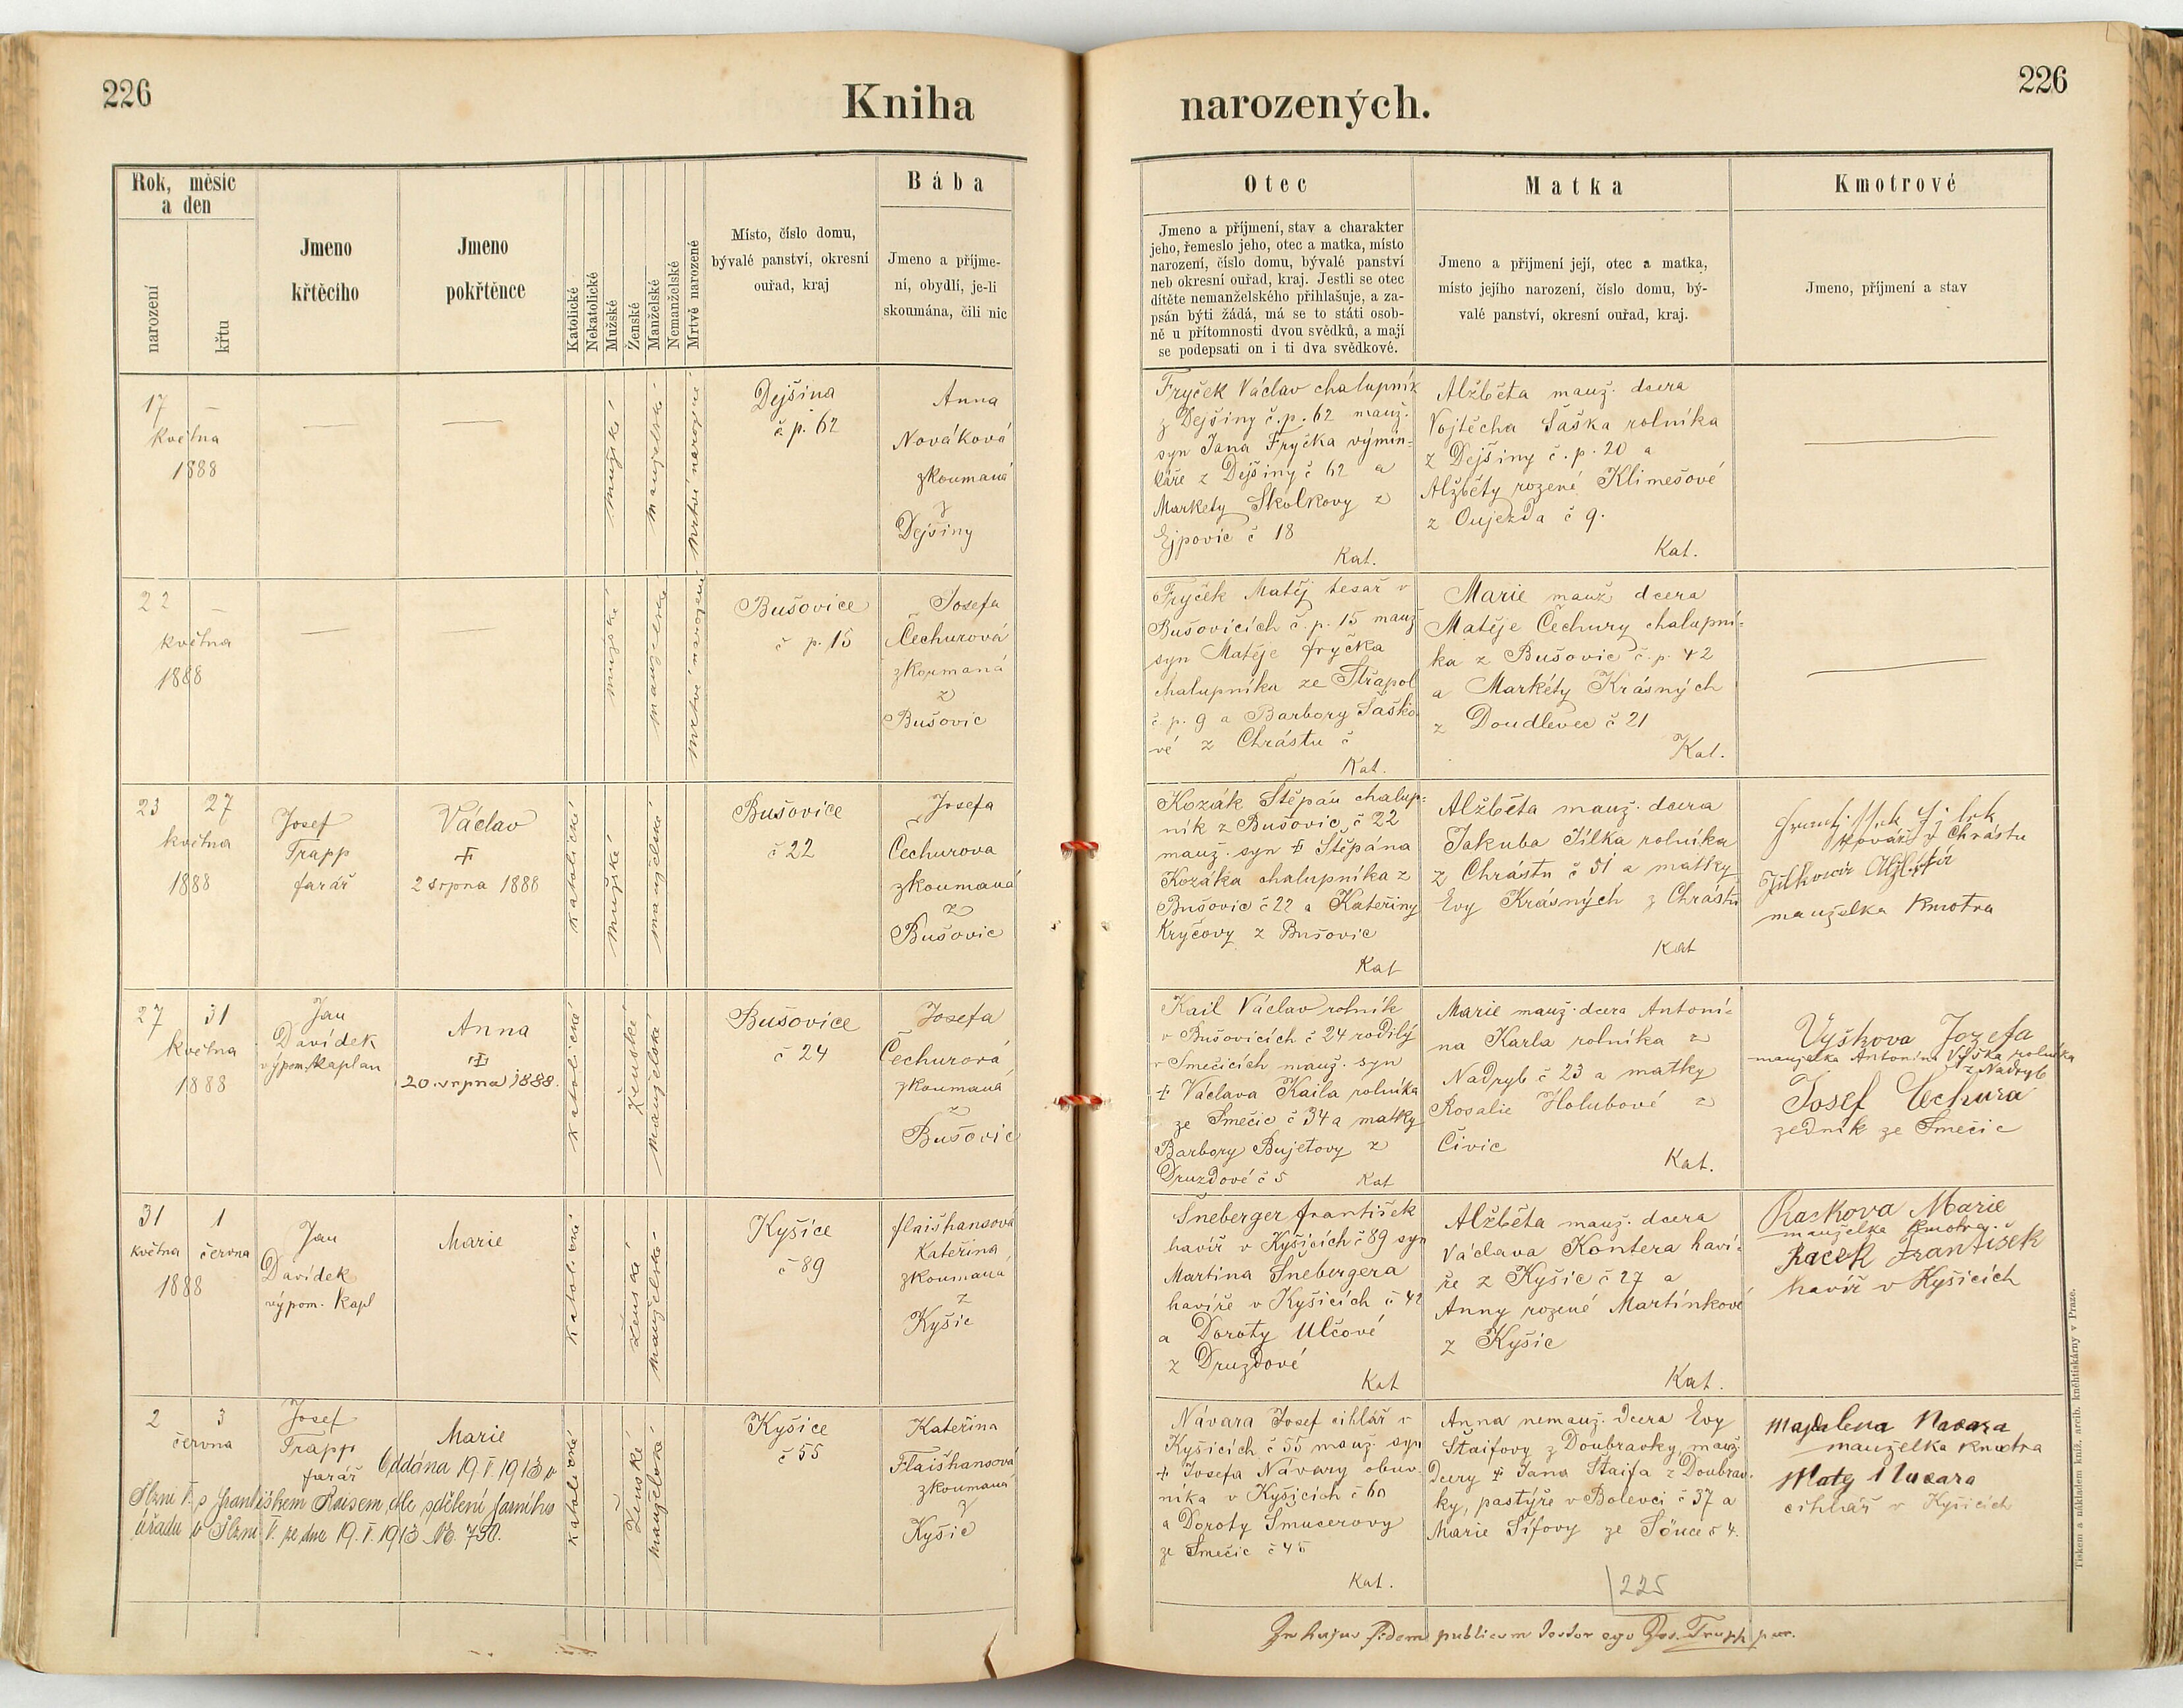 226
Kniha narozených.
226
Rok, měsíc
a den
narození
křtu
Jmeno
křtěcího
Jmeno
pokřtěnce
Katolické
Nekatolické
Mužské
Ženské
Manželské
Nemanželské
Mrtvě narozené
Místo, číslo domu,
bývalé panství, okresní
ouřad, kraj
Bába
Jmeno a příjme-
ní, obydlí, je-li
skoumána, čili nic
Otec
Jmeno a příjmení, stav a charakter
jeho, řemeslo jeho, otec a matka, místo
narození, číslo domu, bývalé panství
neb okresní ouřad, kraj. Jestli se otec
dítěte nemanželského přihlašuje, a za-
psán býti žádá, má se to státi osob-
ně u přítomnosti dvou svědků, a mají
se podepsati on i ti dva svědkové.
Matka
Jmeno a přijmení její, otec a matka,
místo jejího narození, číslo domu, bý-
valé panství, okresní ouřad, kraj.
Kmotrové
Jmeno, příjmení a stav
17 —
května
1888
—
—
mužské
manželské
mrtvě narozené
Dejšina
č. p. 62
Anna
Nováková
zkoumaná
z
Dejšiny
Fryček Václav chalupník
z Dejšiny č. p. 62 manž.
syn Jana Fryčka výmin-
káře z Dejšiny č 62 a
Markety Školkovy z
Ejpovic č 18
Kat.
Alžběta manž. dcera
Vojtěcha Šaška rolníka
z Dejšiny č. p. 20 a
Alžběty rozené Klimešové
z Oujezda č 9.
Kat.
22 —
května
1888
—
—
mužské
manželské
mrtvě narozené
Bušovice
č p. 15
Josefa
Čechurová
zkoumaná
z
Bušovic
Fryček Matěj tesař v
Bušovicích č. p. 15 manž
syn Matěje fryčka
chalupníka ze Střapol
č. p. 9 a Barbory Šaško
vé z Chrástu č
Kat.
Marie manž dcera
Matěje Čechury chalupní-
ka z Bušovic č. p. 42
a Markéty Krásných
z Doudlevec č 21
Kat.
23 27
května
1888
Josef
Trapp
farář
Václav
2 srpna 1888
Katolické
mužské
manželské
Bušovice
č 22
Josefa
Čechurova
zkoumaná
z
Bušovic
Kozák Štěpán chalup-
ník z Bušovic č 22
manž. syn ‡ Štěpána
Kozáka chalupníka z
Bušovic č 22 a Kateřiny
Kryčovy z Bušovic
Kat
Alžběta manž. dcera
Jakuba Jílka rolníka
z Chrástu č 51 a matky
Evy Krásných z Chrástu
Kat
kovář z Chrástu
manželka kmotra
27 31
května
1888
Jan
Davídek
výpom. kaplan
Anna
20. srpna 1888.
Katolické
Ženské
manželské
Bušovice
č 24
Josefa
Čechurová
zkoumaná
z
Bušovic
Kail Václav rolník
v Bušovicích č 24 rodilý
v Smečicích manž. syn
‡ Václava Kaila rolníka
ze Smečic č 34 a matky
Barbory Bujetovy z
Druzdové č 5
Kat
Marie manž. dcera Antoní-
na Karla rolníka z
Nadryb č 23 a matky
Rosalie Holubové z
Čivic
Kat.
Vyškova Jozefa
manželka Antonína Vyška rolníka
z Nadryb
Josef Čechura
zedník ze Smečic
31 1
května června
1888
Jan
Davídek
výpom. kapl
Marie
Katolické
Ženské
manželské
Kyšice
č 89
flaišhansová
Kateřina
zkoumaná
z
Kyšic
Šneberger františek
havíř v Kyšicích č 89 syn
Martina Šnebergera
havíře v Kyšicích č 42
a Doroty Ulčové
z Druzdové
Kat
Alžběta manž. dcera
Václava Kontera haví-
ře z Kyšic č 27 a
Anny rozené Martínkové
z Kyšic
Kat.
Rackova Marie
manželka kmotra.
Racek František
havíř v Kyšicích
2 3
června
Josef
Trapp
farář
Marie
Oddána 19. V. 1913 v
Plzni V. s Františkem Raisem, dle sdělení farního
úřadu v Plzni V. ze dne 19. V. 1913 № 730.
Katolické
Ženské
manželské
Kyšice
č 55
Kateřina
Flaišhansová
zkoumaná
z
Kyšic
Návara Josef cihlář v
Kyšicích č 55 manž. syn
‡ Josefa Návary obuv-
níka v Kyšicích č 60
a Doroty Smucerovy
ze Smečic č 45
Kat.
Anna nemanž. dcera Evy
Štaifovy z Doubravky, manž.
dcery ‡ Jana Štaifa z Doubrav-
ky, pastýře v Bolevci č 37 a
Marie Šífovy ze č 4.
Magdalena Navara
manželka kmotra
Navara
cihlář v Kyšicích
225
In hujus fidem publicam testor ego Jos. Trapp par.
Tiskem a nákladem kníž. arcib. knihtiskárny v Praze.